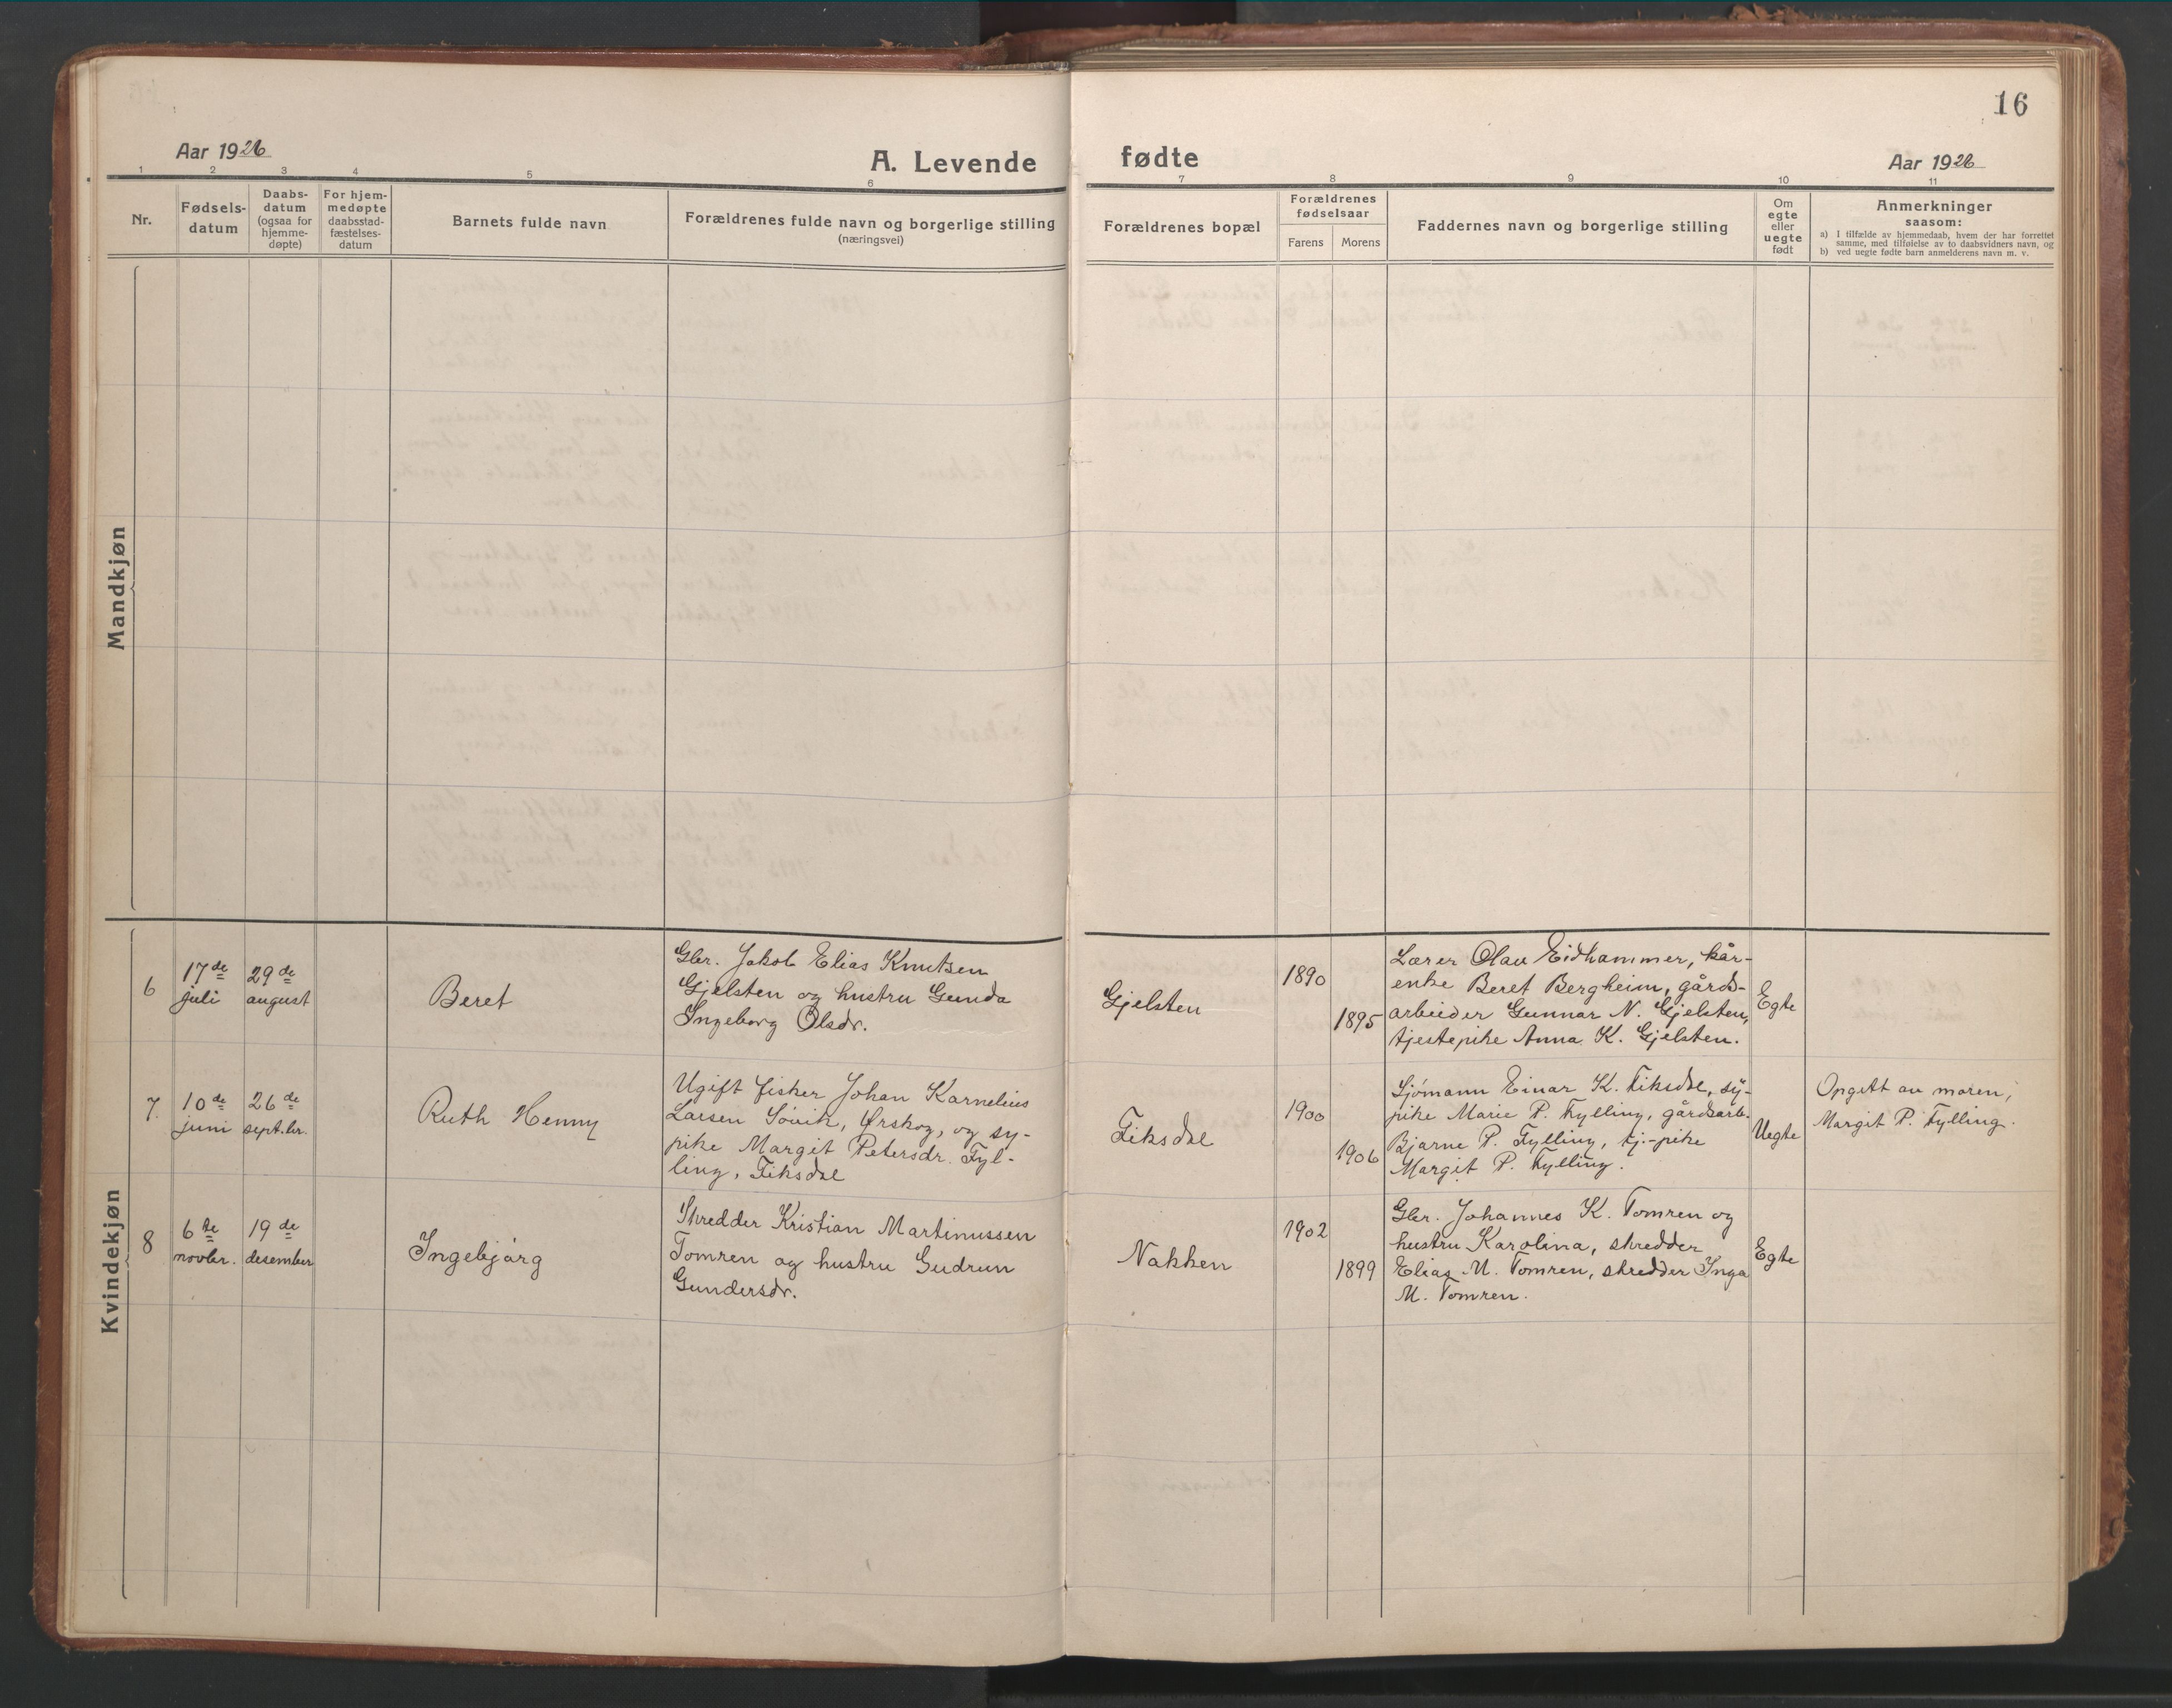 16
Aar 1926
A. Levende fødte
Aar 1926
1 2 3 4 5 6 7 8 9 10 11
Nr.
Fødsels-
datum
Daabs-
datum
(ogsaa for
hjemme-
døpte)
For hjem-
medøpte
daabsstad-
fæstelses-
datum
Barnets fulde navn
Forældrenes fulde navn og borgerlige stilling
(næringsvei)
Forældrenes bopæl
Forældrenes
fødselsaar
Farens
Morens
Faddernes navn og borgerlige stilling
Om
egte
eller
uegte
født
Anmerkninger
saasom:
a) I tilfælde av hjemmedaab, hvem der har forrettet
samme, med tilføielse av to daabsvidners navn, og
b) ved uegte fødte barn anmelderens navn m. v.
Mandkjøn
Kvindekjøn
6
17de
juli
29de
august
Beret
Gbr. Jakob Elias Knutsen
Gjelsten og hustru Gunda
Ingeborg Olsdr.
Gjelsten
1890
1895
Lærer Olav Eidhammer, kår-
enke Beret Bergheim, gårds-
arbeider Gunnar N. Gjelsten,
tjestepike Anna K. Gjelsten.
Egte
7
10de
juni
26de
sept.br.
Ruth Henny
Ugift fisker Johan Karnelius
Larsen Søvik, Ørskog, og sy-
pike Margit Petersdr. Fyl-
ling, Fiksdal
Fiksdal
1900
1906
Sjømann Einar K. Fiksdal, sy-
pike Marie P. Fylling, gårdsarb.
Bjarne P. Fylling, tj.-pike
Margit P. Fylling.
Uegte
Opgitt av moren,
Margit P. Fylling.
8
6te
novbr.
19de
desember
Ingebjørg
Skredder Kristian Martinussen
Tomren og hustru Gudrun
Gundersdr.
Nakken
1902
1899
Gbr. Johannes K. Tomren og
hustru Karolina, skredder
Elias M. Tomren, skredder Inga
M. Tomren.
Egte